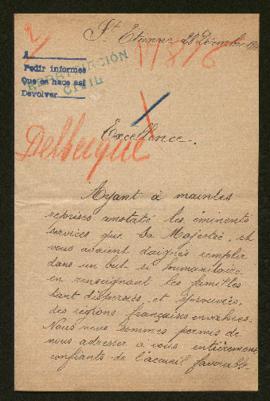 St Etienne 28 Décembre
A
Pedir informes
Que se hace así
Devolver
Excellence.
Delburque
Ayant à maintes
reprises constaté les éminents
services que Sa Majesté, et
vous avaient daigné remplir
dans un but si humanitaire
en renseignant les familles
tant dispersées, et éprouvées,
des régions françaises envahies.
Nous nous sommes permis de
nous adresser à vous entièrement
confiants de l'accueil favorable